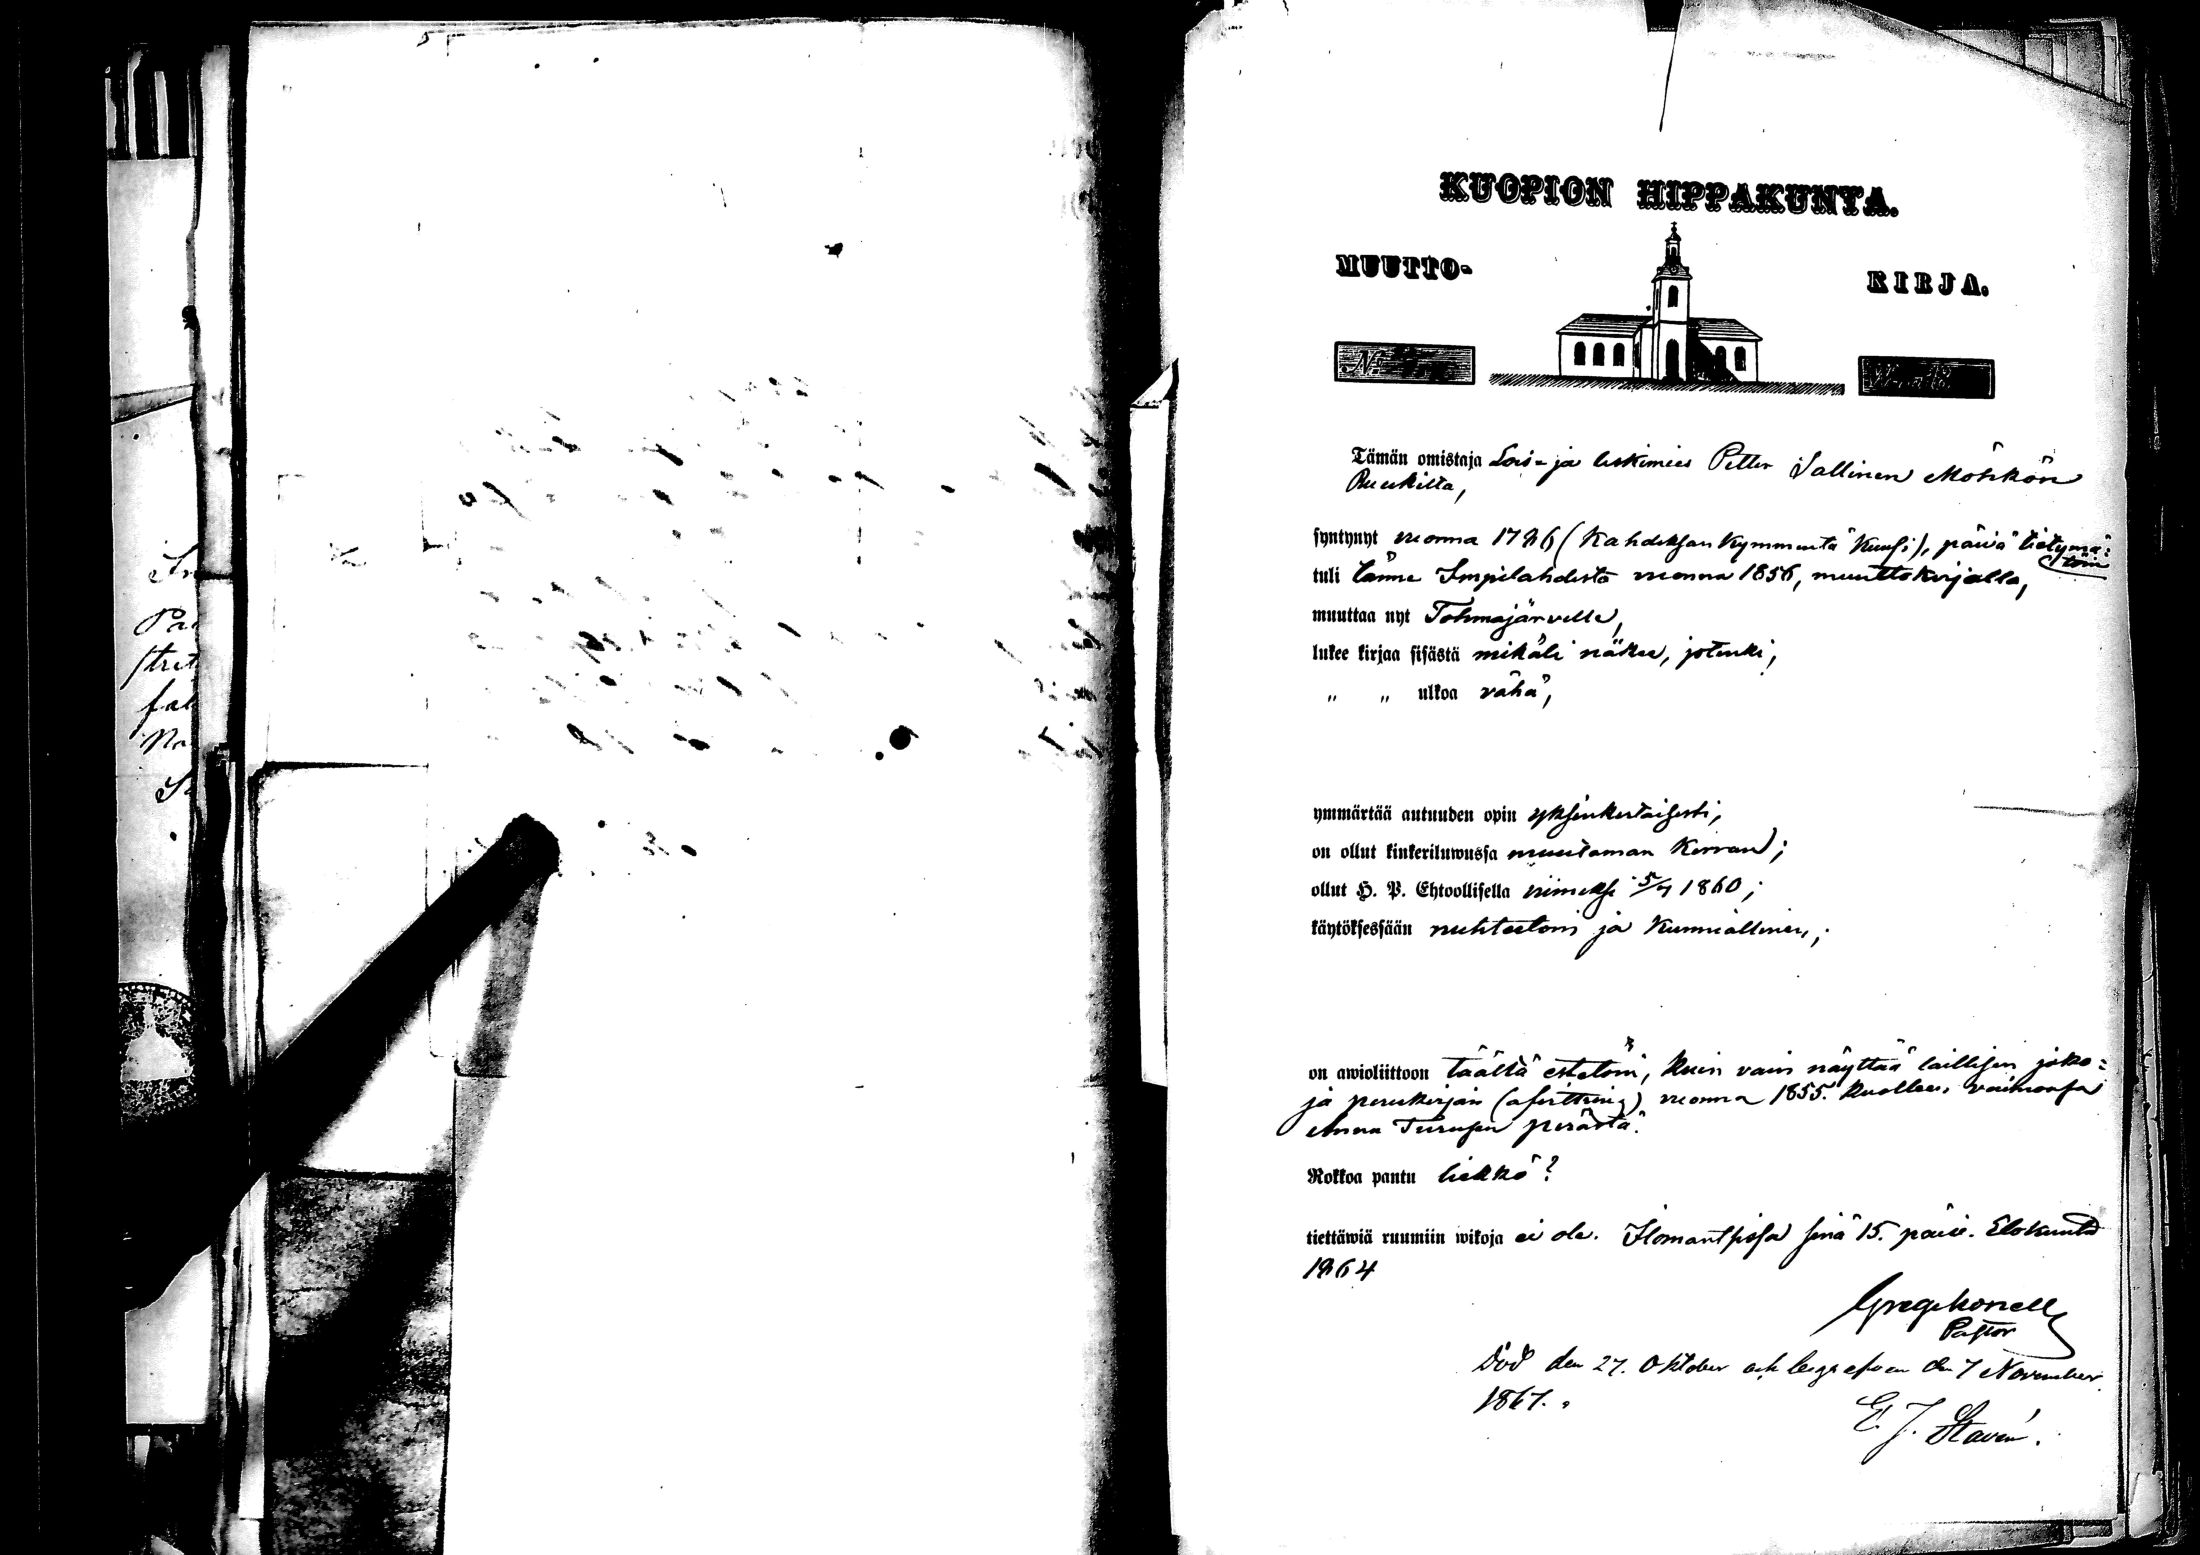 KUOPION HIPPAKUNTA.
MUUTTO-
KIRJA.
N:
Tämän omistaja Lois- ja leskimies Petter Sallinen Möhkön
Ruukilta,
syntynyt vuonna 1786 (kahdeksan kymmentä kuusi), päivä tietymä-
töin
tuli tänne Impilahdesta vuonna 1856, muuttokirjalla,
muuttaa nyt Tohmajärvelle,
lukee kirjaa sisästä mikäli näkee, jotenki,
" " ulkoa vähä,
ymmärtää autuuden opin yksinkertaisesti,
on ollut kinkeriluwussa muutaman kerran;
ollut H. P. Ehtoollisella viimeksi 5/7 1860;
käytöksessään nuhteetoin ja kunniallinen,;
on awioliittoon täältä estetöin, kuin vain näyttää laillisen jako-
ja perukirjan (afvittring) vuonna 1855. kuolleen vaimonsa
Anna Turusen perästä.
Rokkoa pantu liekkö?
tiettäwiä ruumiin wikoja ei ole. Ilomantsissa sinä 15. päiv. Elokuuta
1864
Pastor
Död den 27. Oktober och begrafven den 7 November
1867.
E. J. Stavén.
Pa
fal
No